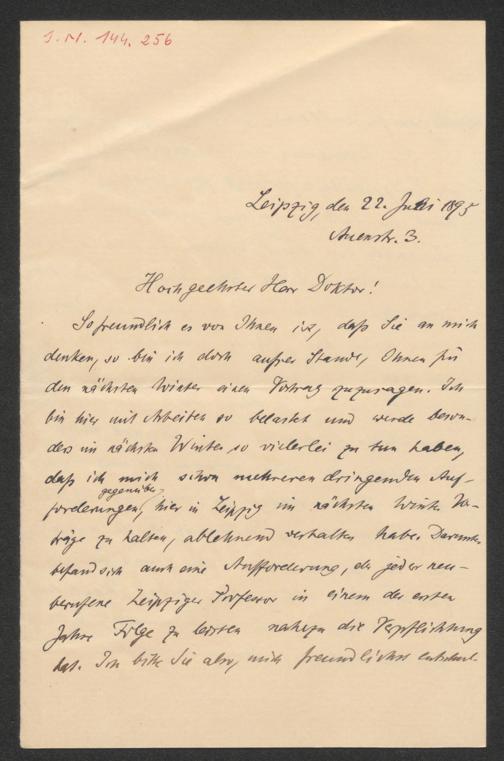 J. N. 144. 256
Leipzig, den 22. Juli 1895
Auenstr. 3.
Hochgeehrter Herr Doktor!
So freundlich es von Ihnen ist, daß Sie an mich
denken, so bin ich doch außer Stande, Ihnen für
den nächsten Winter einen Vortrag zuzusagen. Ich
bin hier mit Arbeiten so belastet und werde beson-
ders im nächsten Winter so vielerlei zu tun haben,
daß ich mich schon mehreren dringenden Auf-
forderungen gegenüber, hier in Leipzig im nächsten Winter Vor-
träge zu halten, ablehnend verhalten habe. Darunter
befand sich auch eine Aufforderung, der jeder neu-
berufene Leipziger Professor in einem der ersten
Jahre Folge zu leisten nahezu die Verpflichtung
hat. Ich bitte Sie also, mich freundlichst entschul-